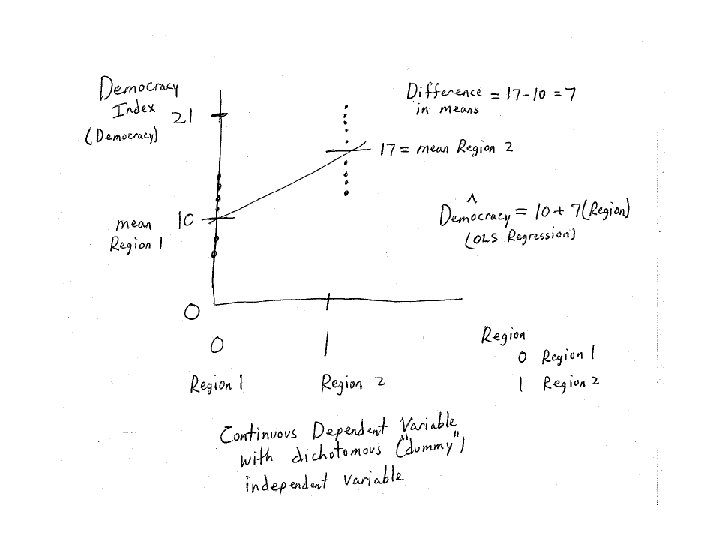 Democracy
Index
(Democracy)
21
Difference = 17-10 = 7
in means
17 = mean Region 2
mean
Region 1
10
^
Democracy = 10 + 7(Region)
(OLS Regression)
0
0
1
Region 1
Region 2
Region
0 Region 1
1 Region 2
Continuous Dependent Variable
with dichotomous ("dummy")
independent variable